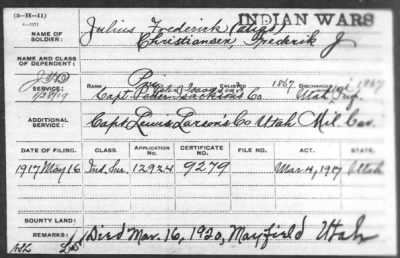 (3-H-11)
INDIAN WARS
NAME OF SOLDIER: Julius Frederick (alias)
Christiansen, Frederik J
NAME AND CLASS OF DEPENDENT:
SERVICE: RANK Pvr. ENLISTED 1867 DISCHARGED 1867
Capt. Peter Isackson's Co Utah Inf.
ADDITIONAL SERVICE: Capt Lewis Larson's Co Utah Mil. Cav.
DATE OF FILING. CLASS. APPLICATION No. CERTIFICATE No. FILE NO. ACT. STATE.
1917 May 16 Ind. Sur. 12924 9279 Mar. 4, 1917 Utah
BOUNTY LAND:
REMARKS: Died Mar. 16, 1920, Mayfield Utah